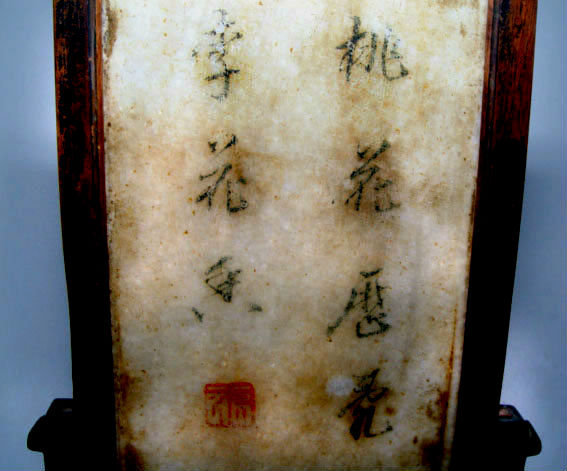 桃花歷亂
李花香